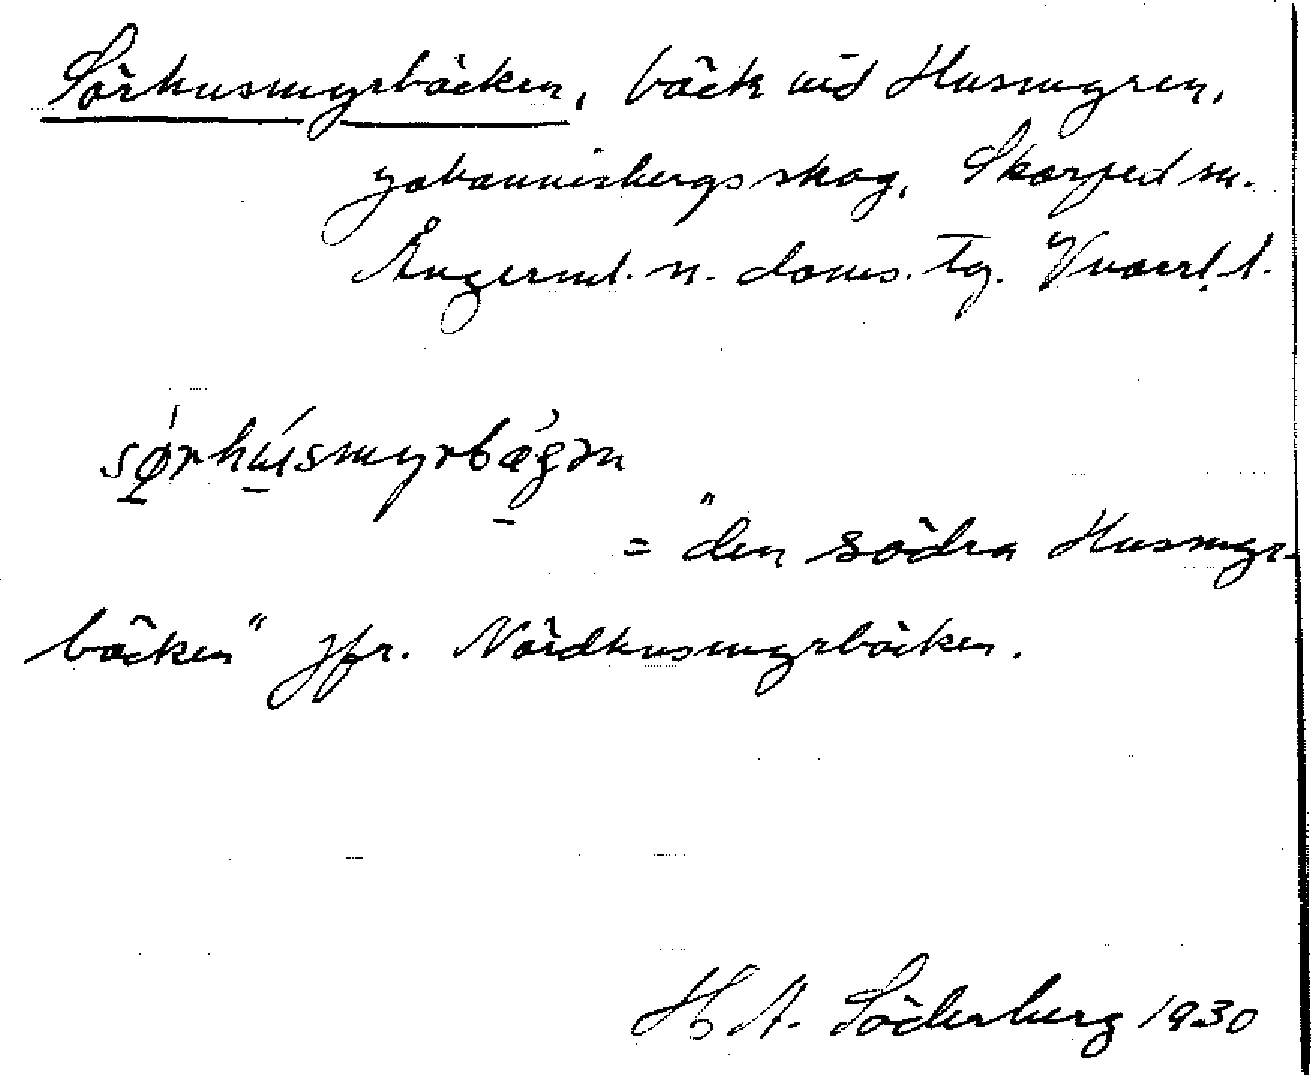 Sörhusmyrbäcken, bäck vid Husmyren,
Johannisbergs skog, Skorped sn.
Ångerml. n. doms. Tg. Vnorrl. l.
= "den södra Husmyr-
bäcken" jfr. Nördhusmyrbäcken.
H A. Söderberg 1930